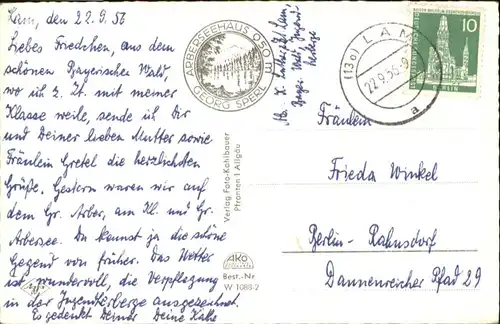 Lam, den 22.9.56
Liebes Friedchen, aus dem
schönen Bayerischen Wald,
wo ich z. Zt. mit meiner
Klasse weile, sende ich Dir
und Deiner lieben Mutter sowie
Fräulein Gretel die herzlichsten
Grüße. Gestern waren wir auf
dem Gr. Arber, am Kl. und Gr.
Arbersee. Du kennst ja die schöne
Gegend von früher. Das Wetter
ist wundervoll, die Verpflegung
in der Jugendherberge ausgezeichnet.
Es gedenkt Deiner Deine Käthe
ARBERSEEHAUS 950 m
GEORG SPERL
Verlag Foto-Kohlbauer
Pfronten i. Allgäu
AKO
Best.-Nr.
W 1088-2
Lam,
Bayer. Wald, Jugend-
herberge
(13a) LAM
22.9.56
a
10
Fräulein
Frieda Winkel
Berlin-Rahnsdorf
Dannenreicher Pfad 29